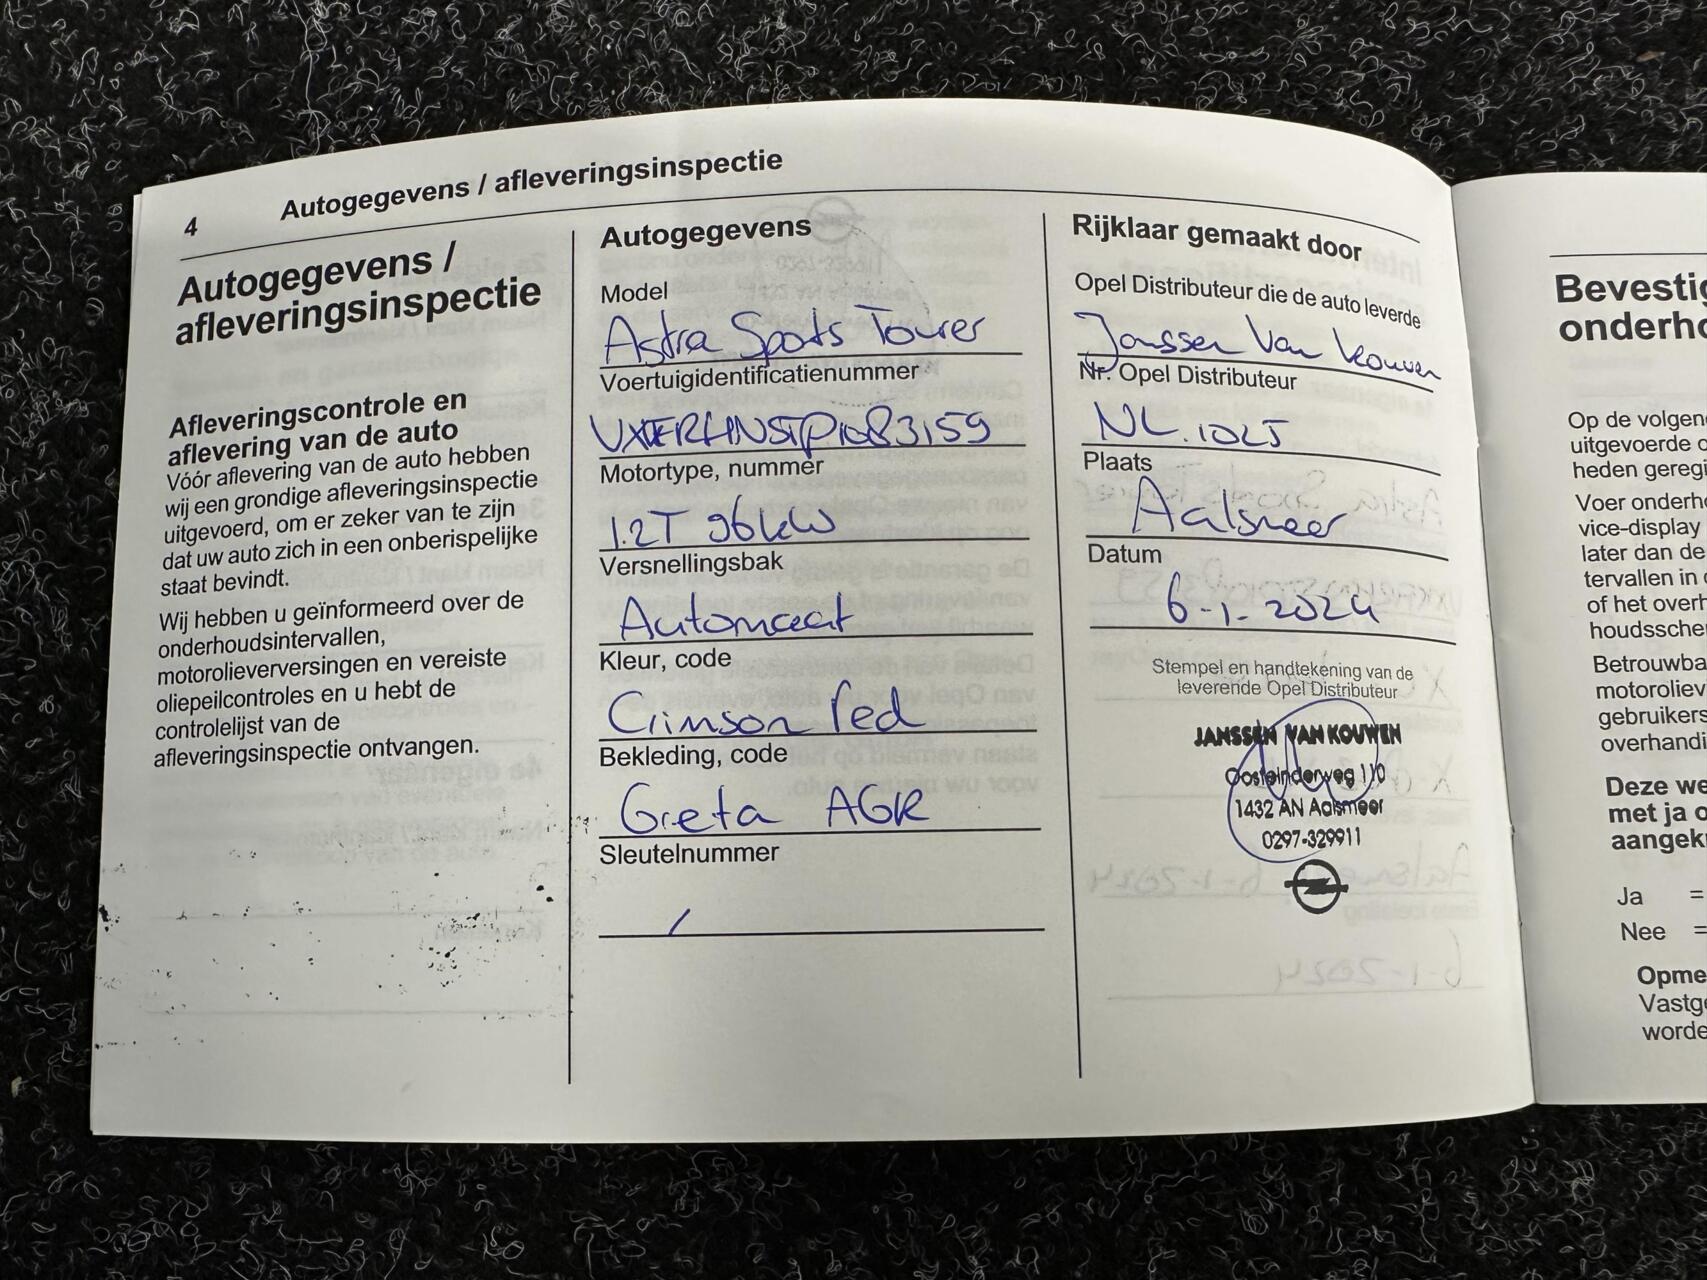 4
Autogegevens / afleveringsinspectie
Autogegevens /
afleveringsinspectie
Afleveringscontrole en
aflevering van de auto
Vóór aflevering van de auto hebben
wij een grondige afleveringsinspectie
uitgevoerd, om er zeker van te zijn
dat uw auto zich in een onberispelijke
staat bevindt.
Wij hebben u geïnformeerd over de
onderhoudsintervallen,
motorolieverversingen en vereiste
oliepeilcontroles en u hebt de
controlelijst van de
afleveringsinspectie ontvangen.
Autogegevens
Model
Astra Sports Tourer
Voertuigidentificatienummer
Motortype, nummer
1.2T 96kW
Versnellingsbak
Automaat
Kleur, code
Crimson red
Bekleding, code
Greta AGR
Sleutelnummer
/
Rijklaar gemaakt door
Opel Distributeur die de auto leverde
Janssen Van Kouwen
Nr. Opel Distributeur
NL.1025
Plaats
Aalsmeer
Datum
6-1-2024
Stempel en handtekening van de
leverende Opel Distributeur
JANSSEN VAN KOUWEN
Oosteinderweg 110
1432 AN Aalsmeer
0297-329911
Bevestig
onderho
Op de volgen
uitgevoerde o
heden geregi
Voer onderho
vice-display
later dan de
tervallen in
of het overh
houdssche
Betrouwba
motoroliev
gebruikers
overhandi
Deze we
met ja o
aangek
Ja =
Nee =
Opme
Vastg
worde